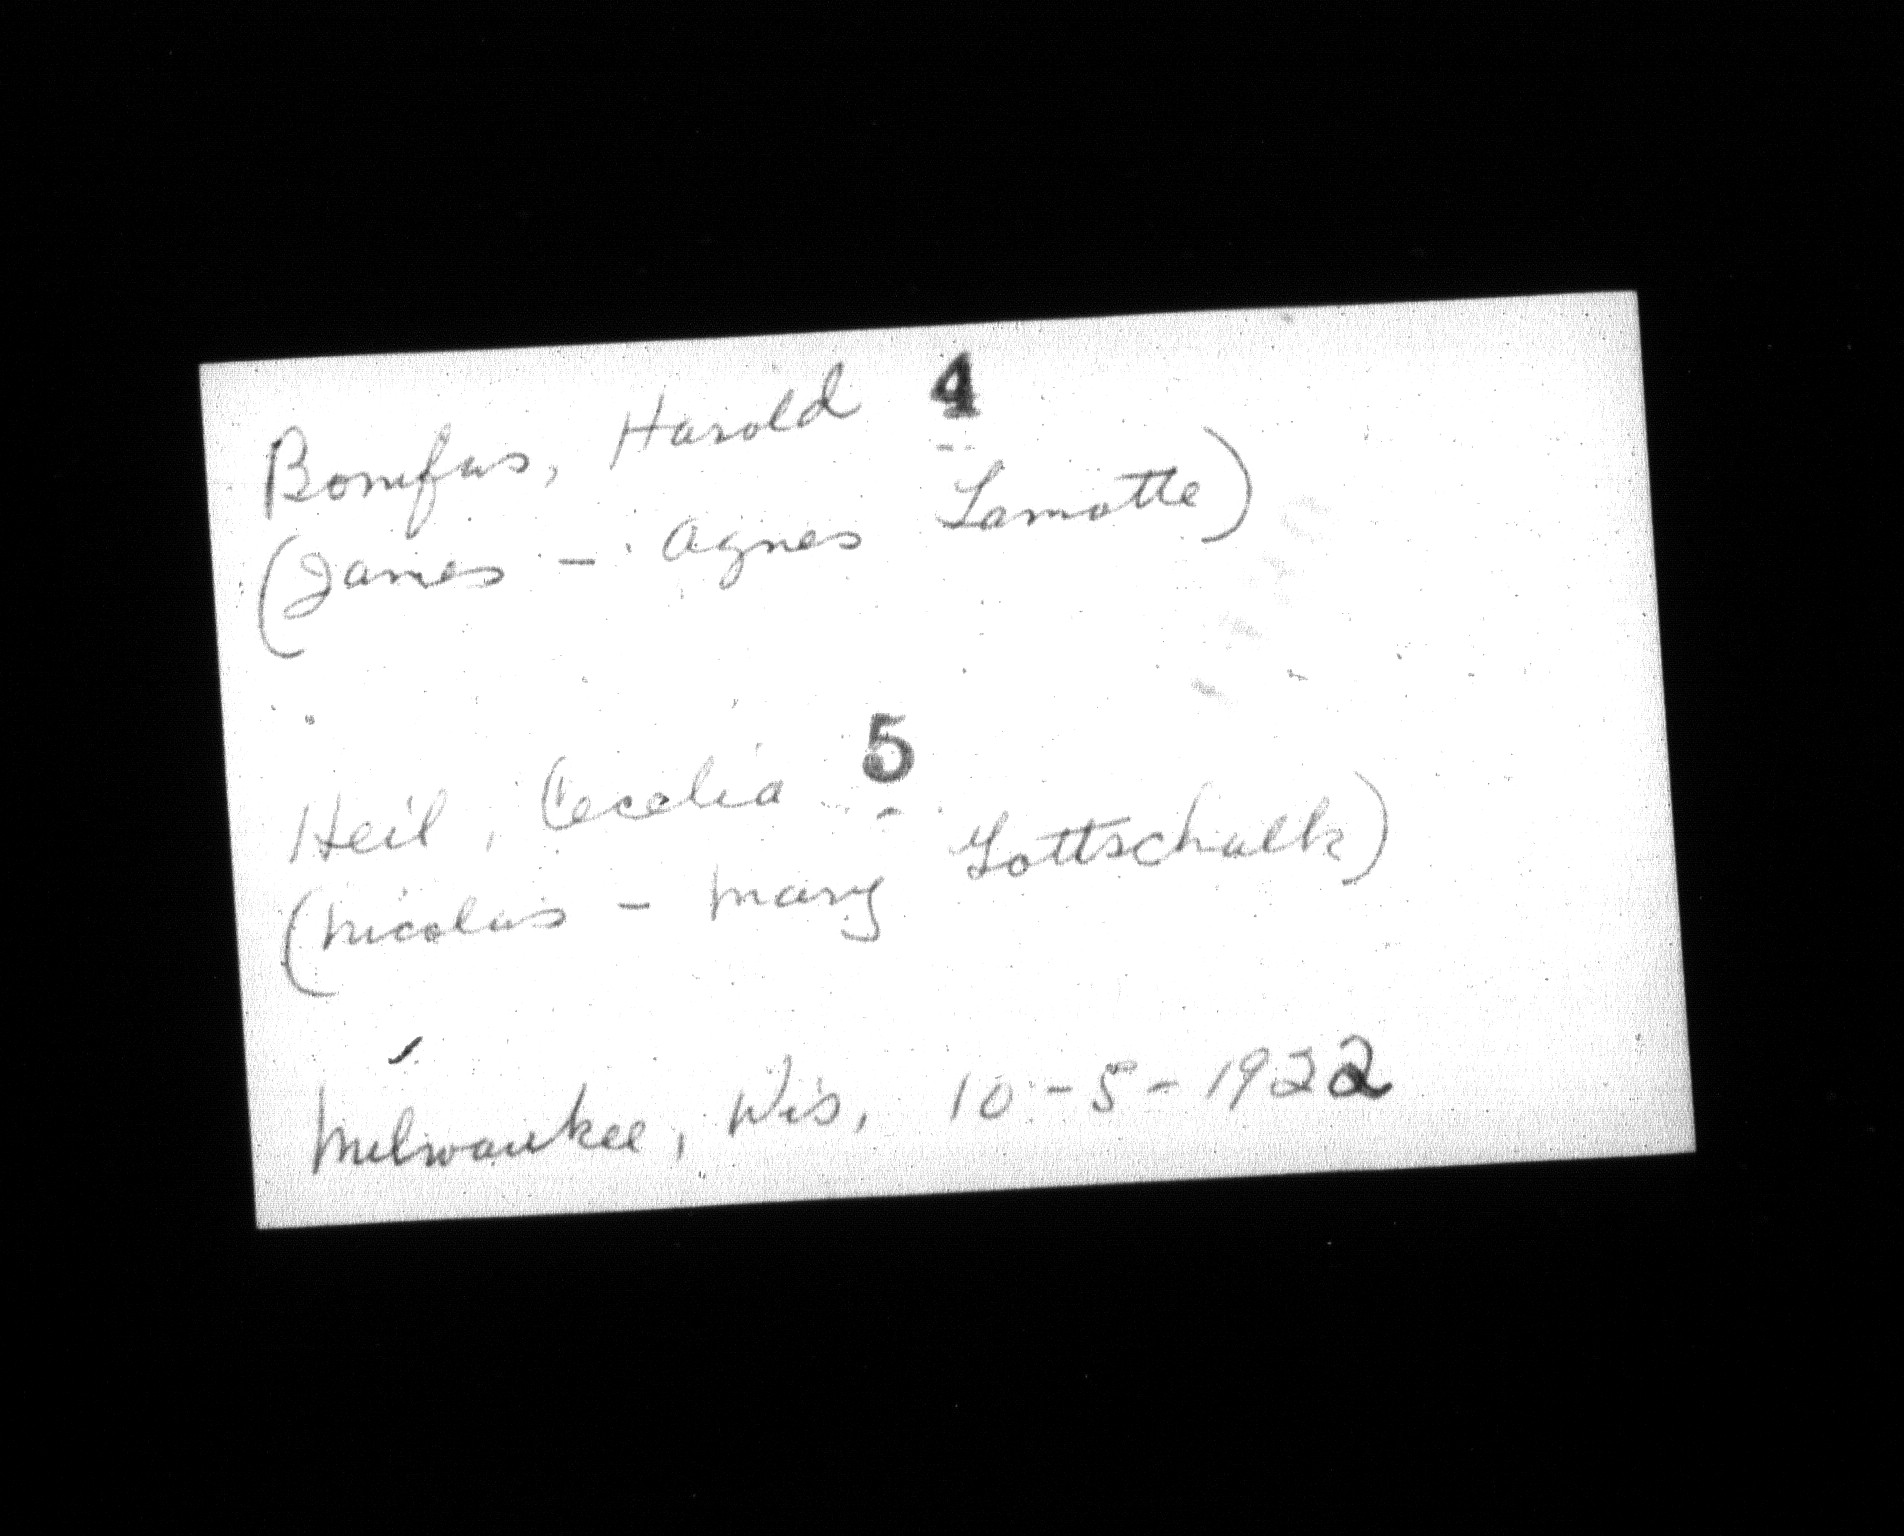 Bonifas, Harold 4
(James - Agnes Lamotte)
Heil, Cecelia 5
(Nicolas - Mary Gottschalk)
Milwaukee, Wis, 10-5-1922